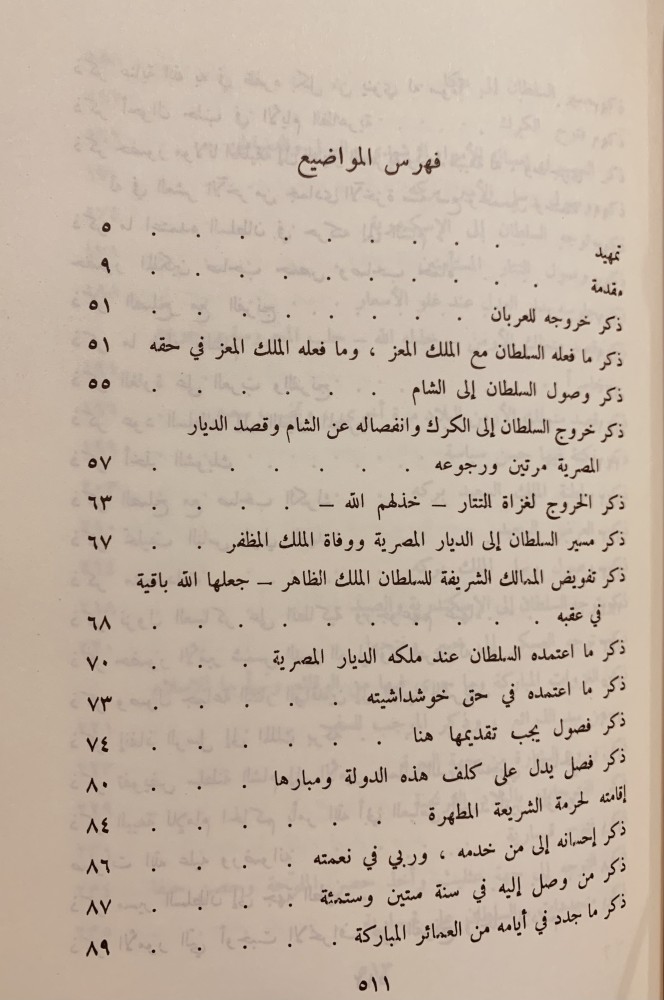 فهرس المواضيع
تمهيد . . . . . . . . . ٥
مقدمة . . . . . . . . . ٩
ذكر خروجه للعربان . . . . . . . ٥١
ذكر ما فعله السلطان مع الملك المعز ، وما فعله الملك المعز في حقه ٥١
ذكر وصول السلطان إلى الشام . . . . . . ٥٥
ذكر خروج السلطان إلى الكرك وانفصاله عن الشام وقصد الديار
المصرية مرتين ورجوعه . . . . . . ٥٧
ذكر الخروج لغزاة التتار – خذلهم الله – . . . . ٦٣
ذكر مسير السلطان إلى الديار المصرية ووفاة الملك المظفر . . ٦٧
ذكر تفويض الممالك الشريفة للسلطان الملك الظاهر – جعلها الله باقية
في عقبه . . . . . . . . . ٦٨
ذكر ما اعتمده السلطان عند ملكه الديار المصرية . . . ٧٠
ذكر ما اعتمده في حق خوشداشيته . . . . . ٧٣
ذكر فصول يجب تقديمها هنا . . . . . . ٧٤
ذكر فصل يدل على كلف هذه الدولة ومبارها . . . ٨٠
إقامته لحرمة الشريعة المطهرة . . . . . . ٨٤
ذكر إحسانه إلى من خدمه ، وربي في نعمته . . . . ٨٦
ذكر من وصل إليه في سنة ستين وستمئة . . . . ٨٧
ذكر ما جدد في أيامه من العمائر المباركة . . . . ٨٩
٥١١